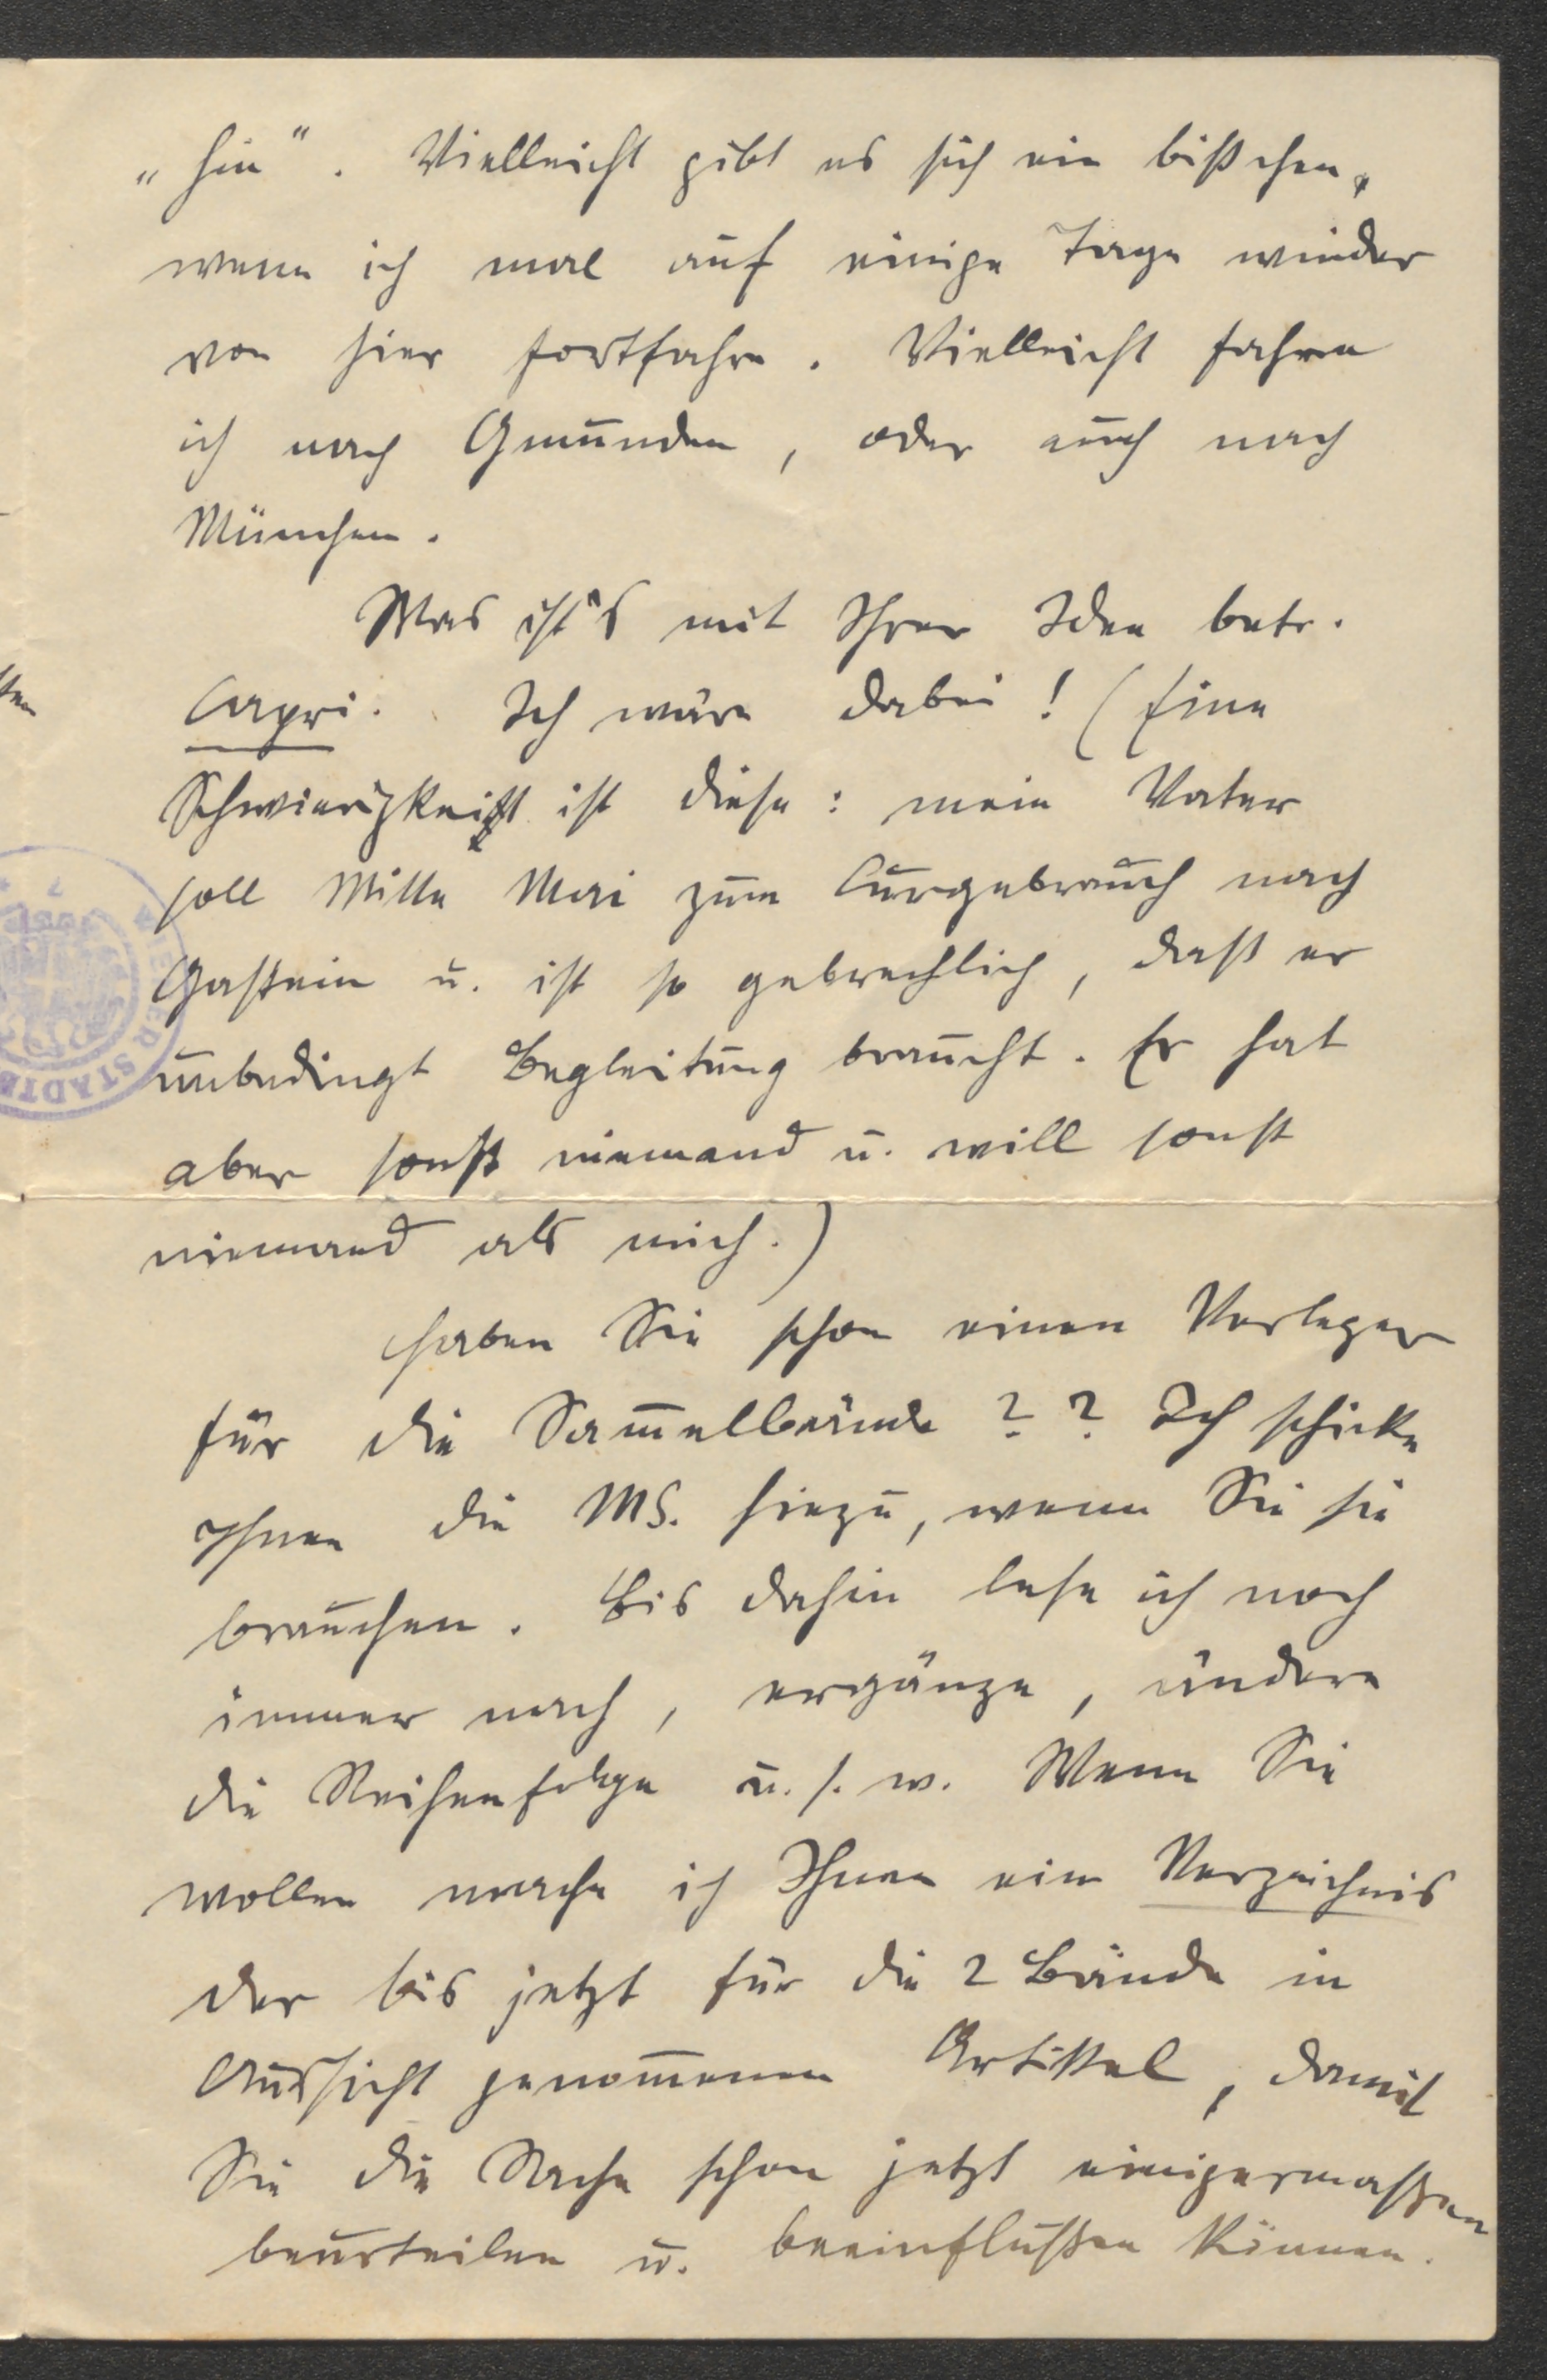 „hin“. Vielleicht gibt es sich ein bißchen,
wenn ich mal auf einige Tage wieder
von hier fortfahre. Vielleicht fahre
ich nach Gmunden, oder auch nach
München.
Was ist's mit Ihrer Idee betr.
Capri. Ich wäre dabei! (Eine
Schwierigkeit ist diese: mein Vater
soll Mitte Mai zum Curgebrauch nach
Gastein u. ist so gebrechlich, daß er
unbedingt Begleitung braucht. Er hat
aber sonst niemand u. will sonst
niemand als mich.)
Haben Sie schon einen Verleger
für die Sam̅elbände?? Ich schicke
Ihnen die MS. hiezu, wenn Sie sie
brauchen. Bis dahin lese ich noch
immer nach, ergänze, ändere
die Reihenfolge u. s. w. Wenn Sie
wollen mache ich Ihnen ein Verzeichnis
der bis jetzt für die 2 Bände in
Aussicht genom̅enen Artikel, damit
Sie die Sache schon jetzt einigermaßen
beurteilen u. beeinflußen können.